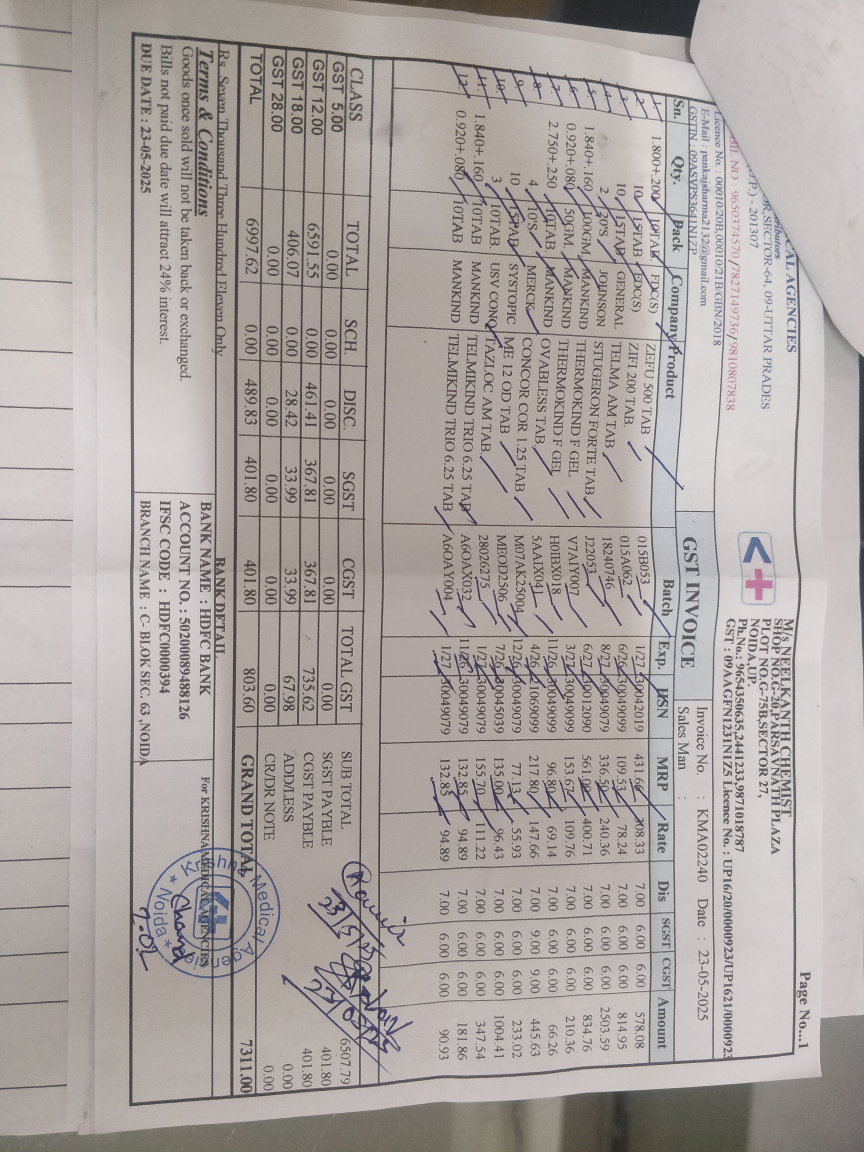 Page No...1
CAL AGENCIES
M/s NEELKANTH CHEMIST
SHOP NO.G-20,PARSAVNATH PLAZA
PLOT NO.G-75B,SECTOR 27,
NOIDA,UP.
Ph.No.: 9654350635,2441233,9871018787
GST : 09AAGFN1231N1Z5 Licence No.: UP16/20/0000923/UP1621/0000923
OR,SECTOR-64, 09-UTTAR PRADES
(U.P.) - 201307
NO : 9650374570/7827149736/9810807838
Licence No. : 00010/20B,00010/21B/GBN/2018
E-Mail : pankajsharma2132@gmail.com
GSTIN : 09ASVPS3641N1ZP
GST INVOICE
Invoice No. : KMA02240 Date : 23-05-2025
Sales Man :
Sn. Qty. Pack Company Product Batch Exp. HSN MRP Rate Dis SGST CGST Amount
1. 1.800+.200 10TAB FDC(S) ZEFU 500 TAB 015B053 1/27 30042019 431.66 308.33 7.00 6.00 6.00 578.08
2. 10 15TAB FDC(S) ZIFI 200 TAB. 015A062 6/26 30049099 109.53 78.24 7.00 6.00 6.00 814.95
3. 10 15TAB GENERAL TELMA AM TAB 18240746 8/27 30049079 336.50 240.36 7.00 6.00 6.00 2503.59
4. 2 20'S JOHNSON STUGERON FORTE TAB J22053 6/27 30012090 561.00 400.71 7.00 6.00 6.00 834.76
5. 1.840+.160 100GM MANKIND THERMOKIND F GEL V7AIY007 3/27 30049099 153.67 109.76 7.00 6.00 6.00 210.36
6. 0.920+.080 50GM. MANKIND THERMOKIND F GEL H0IBX018 11/26 30049099 96.80 69.14 7.00 6.00 6.00 66.26
7. 2.750+.250 10TAB MANKIND OVABLESS TAB 5AAIX041 4/26 21069099 217.80 147.66 7.00 9.00 9.00 445.63
8. 4 10'S MERCK CONCOR COR 1.25 TAB M07AK25004 12/26 30049099 77.13 55.93 7.00 6.00 6.00 233.02
9. 10 15TAB SYSTOPIC ME 12 OD TAB MEOD2506 7/26 30045039 135.00 96.43 7.00 6.00 6.00 1004.41
10. 3 10TAB USV CONQ TAZLOC AM TAB. 28026275 1/27 30049079 155.70 111.22 7.00 6.00 6.00 347.54
11. 1.840+.160 10TAB MANKIND TELMIKIND TRIO 6.25 TAB A6OAX032 11/26 30049079 132.85 94.89 7.00 6.00 6.00 181.86
12. 0.920+.080 10TAB MANKIND TELMIKIND TRIO 6.25 TAB A6OAY004 1/27 30049079 132.85 94.89 7.00 6.00 6.00 90.93
CLASS TOTAL SCH. DISC. SGST CGST TOTAL GST
GST 5.00 0.00 0.00 0.00 0.00 0.00 0.00
GST 12.00 6591.55 0.00 461.41 367.81 367.81 735.62
GST 18.00 406.07 0.00 28.42 33.99 33.99 67.98
GST 28.00 0.00 0.00 0.00 0.00 0.00 0.00
TOTAL 6997.62 0.00 489.83 401.80 401.80 803.60
SUB TOTAL 6507.79
SGST PAYBLE 401.80
CGST PAYBLE 401.80
ADD/LESS 0.00
CR/DR NOTE 0.00
GRAND TOTAL 7311.00
Rs. Seven Thousand Three Hundred Eleven Only
Terms & Conditions
Goods once sold will not be taken back or exchanged.
Bills not paid due date will attract 24% interest.
DUE DATE : 23-05-2025
BANK DETAIL
BANK NAME : HDFC BANK
ACCOUNT NO. : 50200089488126
IFSC CODE : HDFC0000394
BRANCH NAME : C- BLOK SEC. 63 ,NOIDA
For KRISHNA MEDICAL AGENCIES
Krishna Medical Agencies
Noida